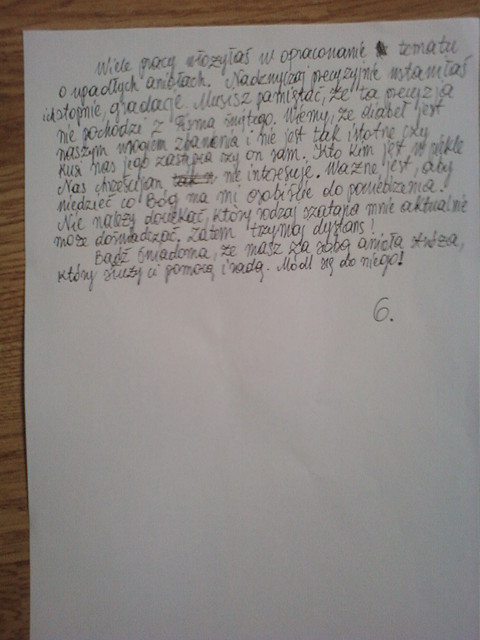 Wiele pracy włożyłaś w opracowanie tematu
o upadłych aniołach. Nadzwyczaj precyzyjnie ustaliłaś
ich stopnie, gradację. Musisz pamiętać, że ta precyzja
nie pochodzi z Pisma świętego. Wiemy, że diabeł jest
naszym wrogiem zbawienia i nie jest tak istotne czy
kusi nas jego zastępca czy on sam. Kto kim jest w piekle
Nas chrześcijan nie interesuje. Ważne jest, aby
wiedzieć co Bóg ma mi osobiście do powiedzenia.
Nie należy dociekać, który rodzaj szatana mnie aktualnie
może doświadczać. Zatem trzymaj dystans!
Bądź świadoma, że masz za sobą anioła stróża,
który służy ci pomocą i radą. Módl się do niego!
6.